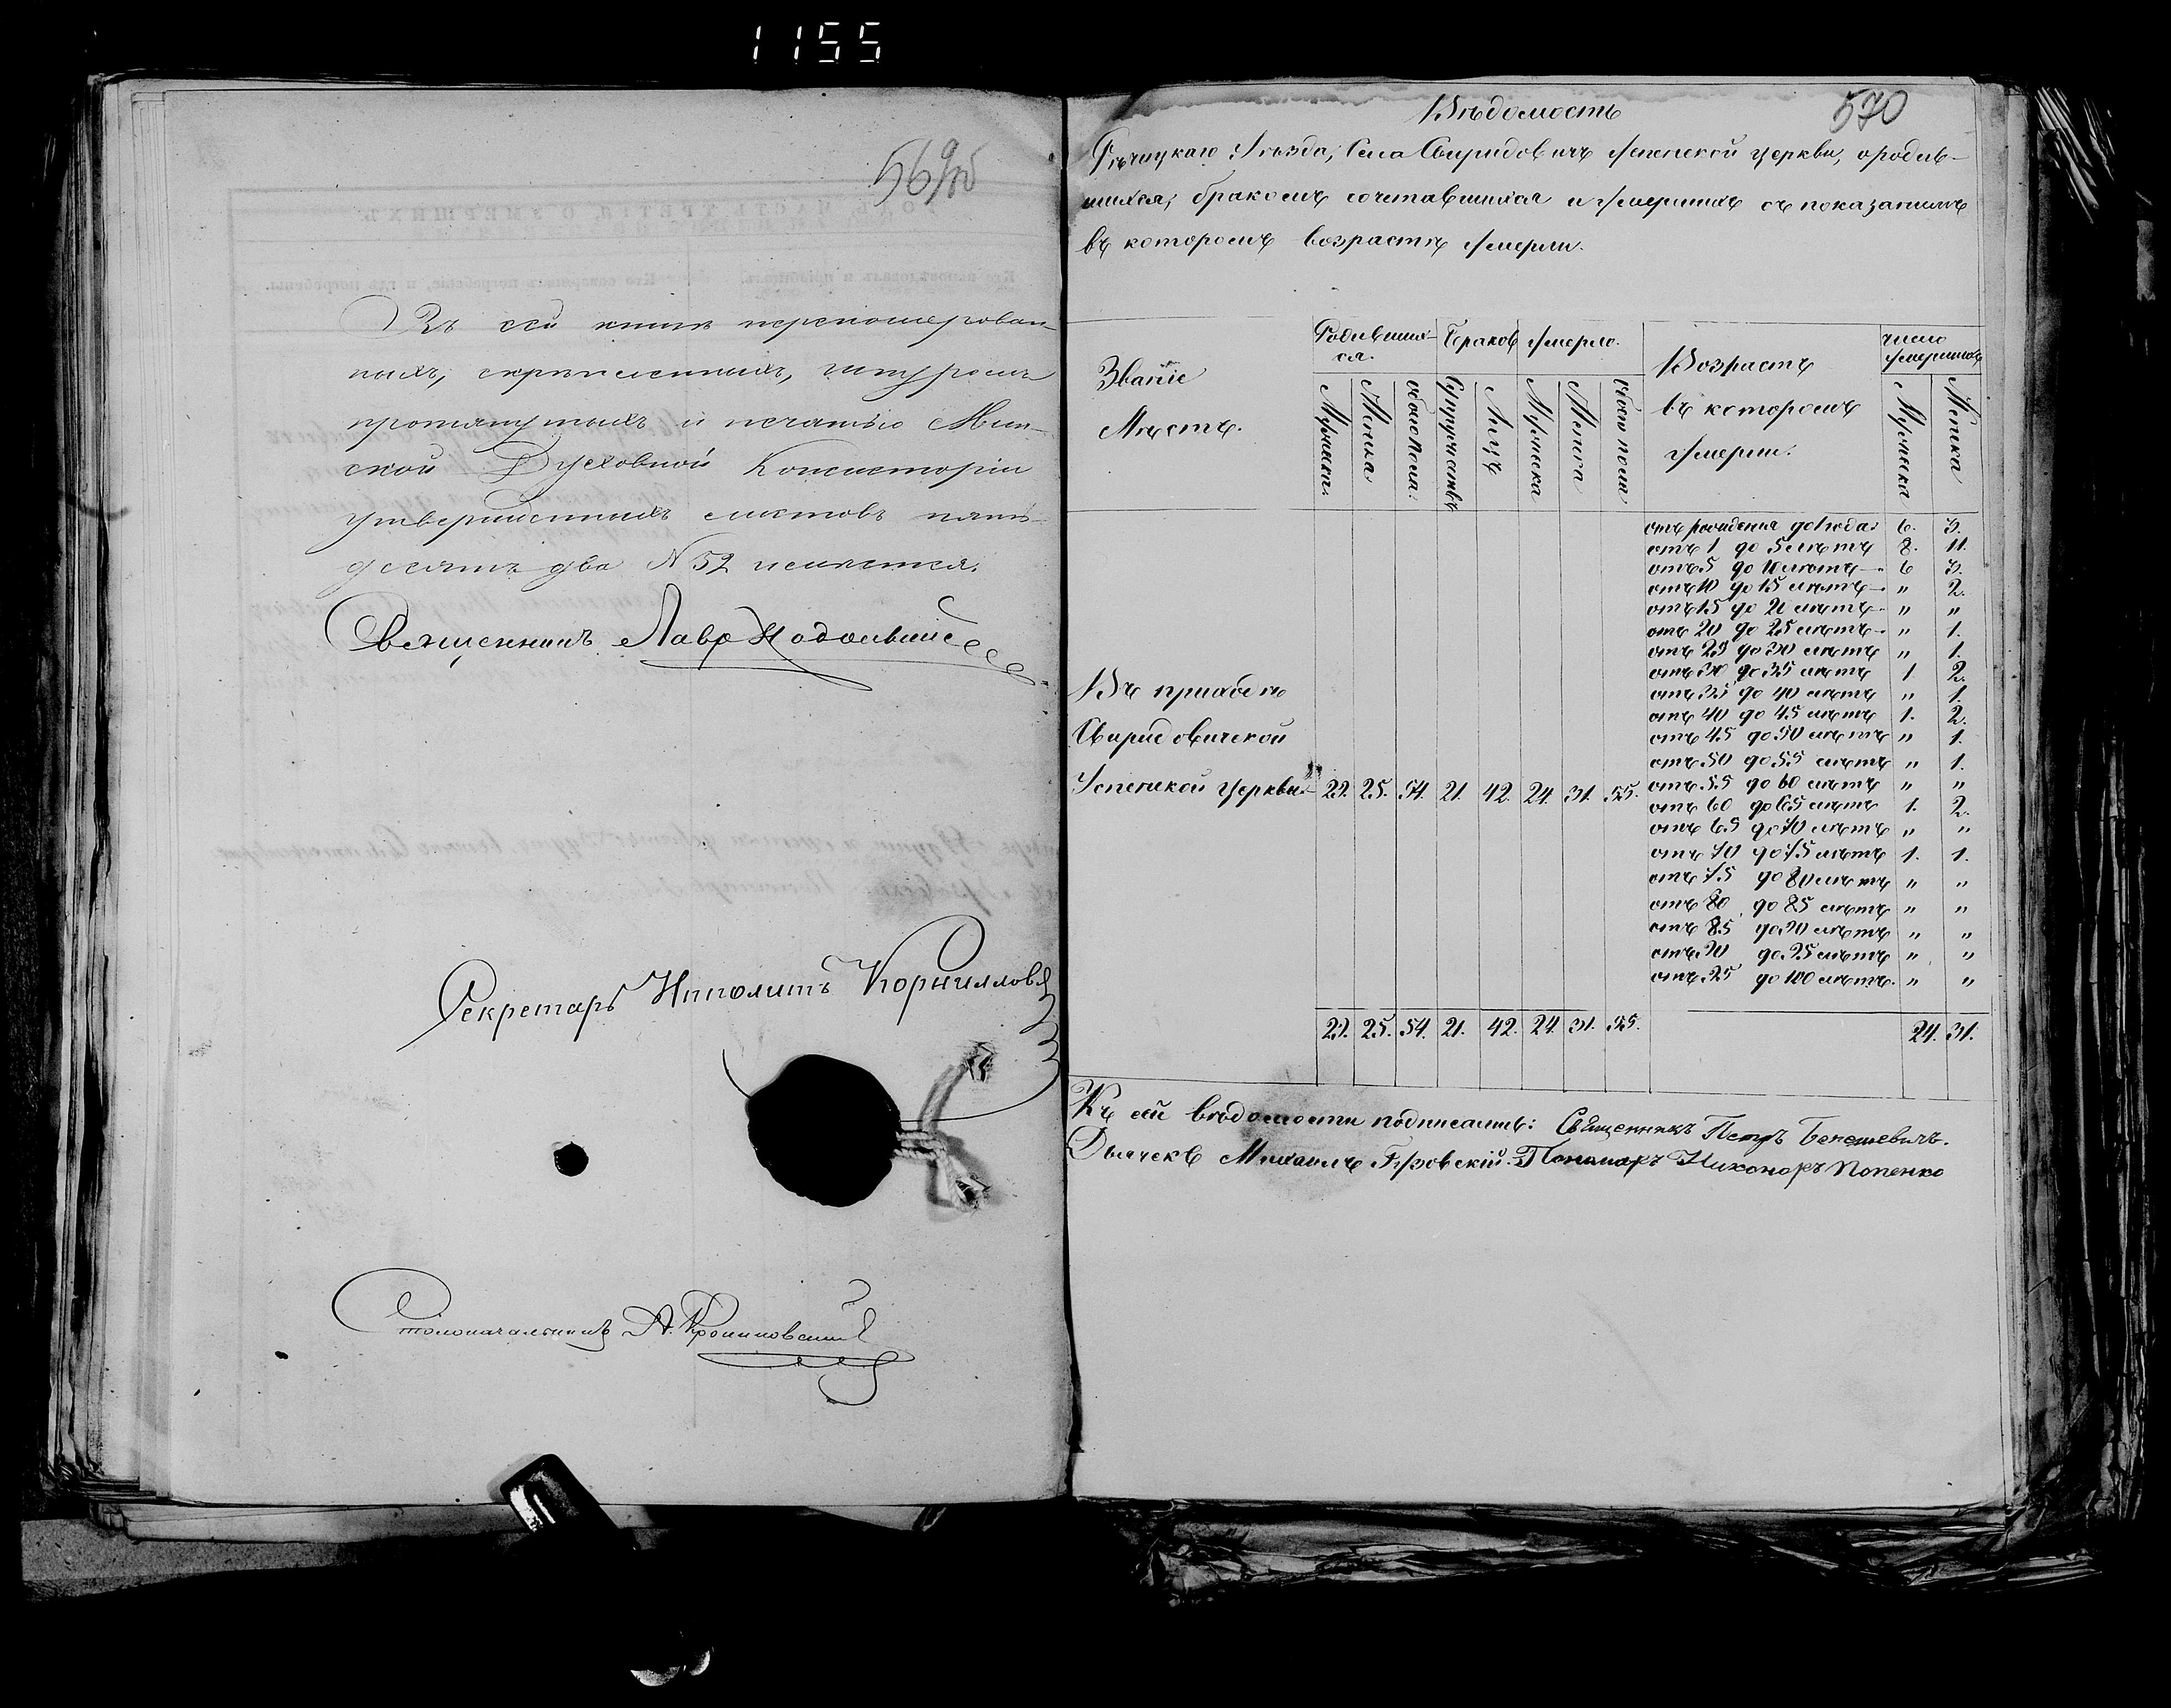 1155
569об
Въ сей книгѣ перенумерован-
ныхъ, скрѣпленныхъ, шнуромъ
протянутыхъ и печатью Мин-
ской Духовной Консисторіи
утвержденныхъ листовъ пять-
десятъ два № 52 имѣется.
Священникъ Лавр
Секретарь Ипполитъ Корниловъ
Столоначальникъ А.
570
Вѣдомость
Рѣчицкаго Уѣзда, Села Свиридовичъ Успенской церкви, о родив-
шихся, бракомъ сочетавшихся и умершихъ съ показаніемъ
въ которомъ возрастѣ умерли.
Званіе Мѣстъ.
Родившихся. Браковъ Умерло.
Возрастъ въ которомъ умерли.
число умершихъ
Мужеска. Женска. обоего пола. Супружествъ Лицъ Мужеска Женска обоего пола Мужеска Женска
отъ рожденія до 1 года. 6. 5.
отъ 1 до 5 лѣтъ 8. 11.
отъ 5 до 10 лѣтъ 6 3.
отъ 10 до 15 лѣтъ " 2.
отъ 15 до 20 лѣтъ " "
отъ 20 до 25 лѣтъ " 1.
отъ 25 до 30 лѣтъ " 1.
отъ 30 до 35 лѣтъ 1. 2.
отъ 35 до 40 лѣтъ " 1.
отъ 40 до 45 лѣтъ 1. 2.
отъ 45 до 50 лѣтъ " 1.
отъ 50 до 55 лѣтъ " 1.
отъ 55 до 60 лѣтъ " "
отъ 60 до 65 лѣтъ 1. 2.
отъ 65 до 70 лѣтъ " "
отъ 70 до 75 лѣтъ 1. 1.
отъ 75 до 80 лѣтъ " "
отъ 80 до 85 лѣтъ " "
отъ 85 до 90 лѣтъ " "
отъ 90 до 95 лѣтъ " "
отъ 95 до 100 лѣтъ. " "
Въ приходѣ
Свиридовичской
Успенской церкви. 29. 25. 54. 21. 42. 24. 31. 55.
29. 25. 54. 21. 42. 24. 31. 55. 24. 31.
Къ сей вѣдомости подписались: Священникъ Петръ Бенешевичъ.
Дьячекъ Михаилъ Пономарь Никоноръ Попенко